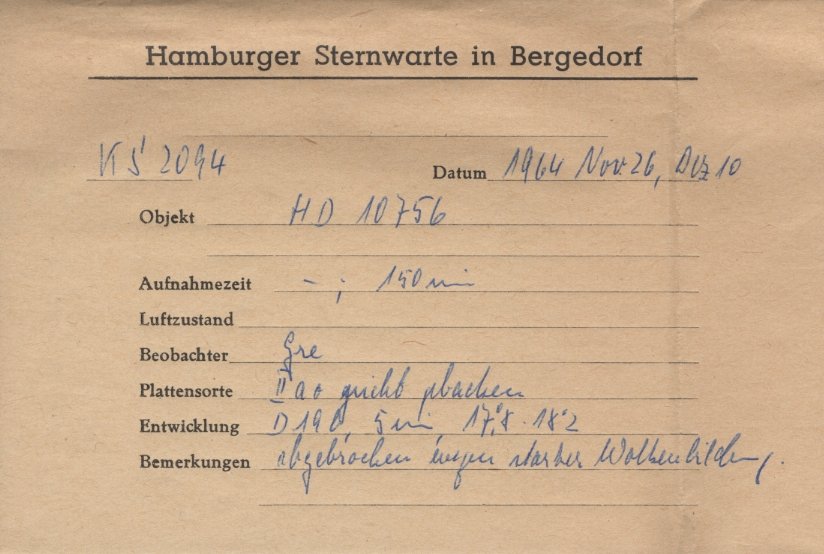 Hamburger Sternwarte in Bergedorf
KS 2094 Datum 1964 Nov. 26, Dez 10
Objekt HD 10756
Aufnahmezeit - ; 150 min
Luftzustand
Beobachter Gre
Plattensorte IIao nicht gebacken
Entwicklung D19b, 5 min 17°,8 - 18°2
Bemerkungen abgebrochen wegen starker Wolkenbildung.